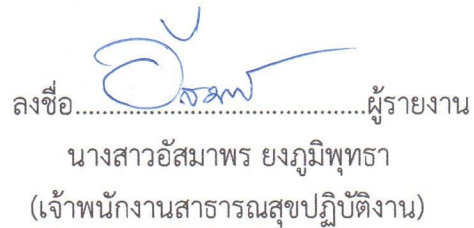 ลงชื่อ.......................................ผู้รายงาน
นางสาวอัสมาพร ยงภูมิพุทธา
(เจ้าพนักงานสาธารณสุขปฏิบัติงาน)